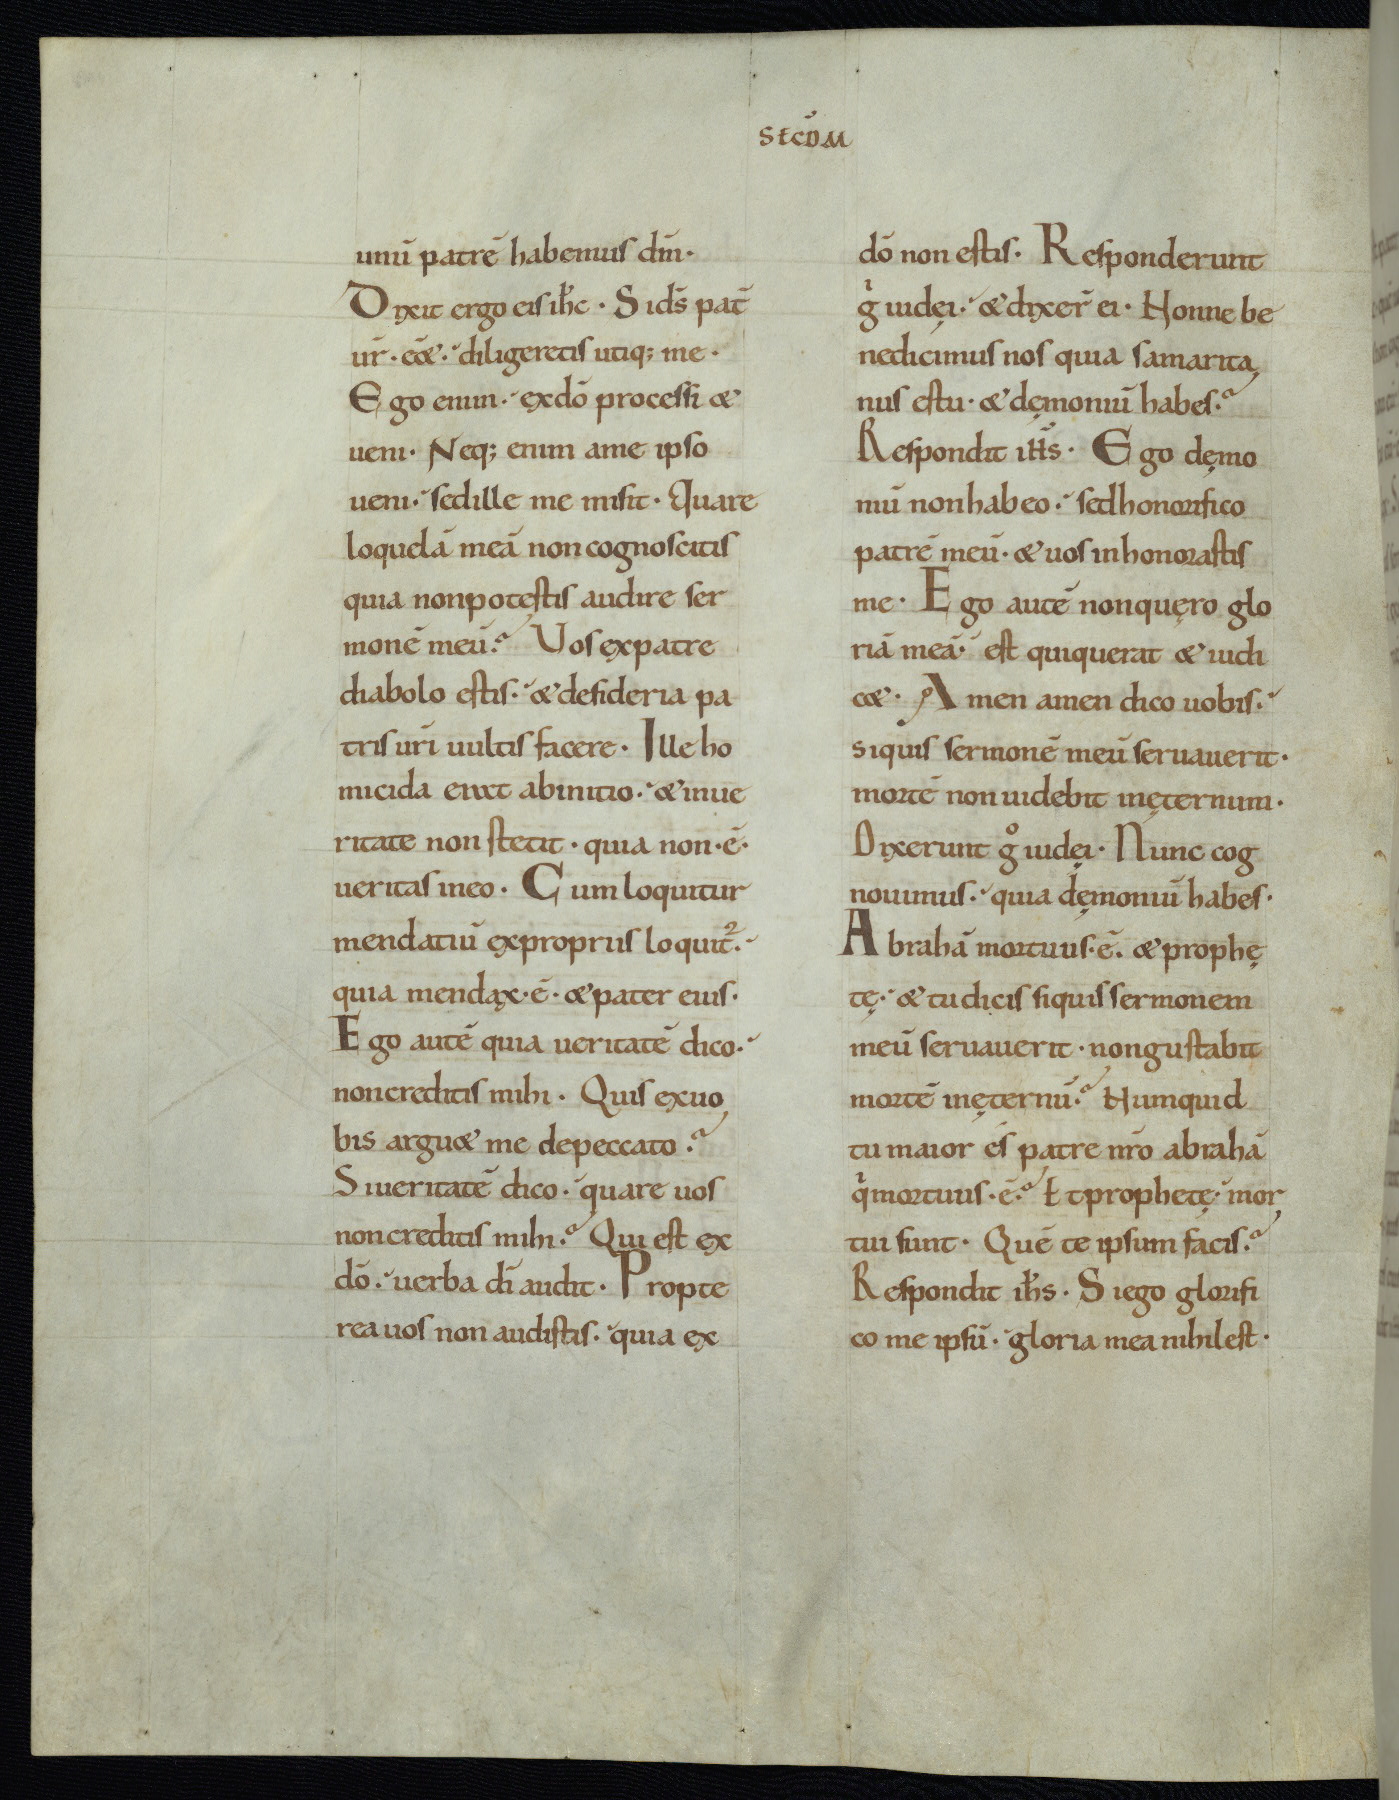 SECD̄M
unū patrē habemus dm̄·
Dixit ergo eis ih̄c · Si ds̄ pat̄
ur̄ · eēt · diligeretis utiq; me ·
Ego enim · ex dō processi et
ueni · Neq; enim a me ipso
ueni · sed ille me misit · Quare
loquelā meā non cognoscitis
quia non potestis audire ser
monē meū? Uos ex patre
diabolo estis · et desideria pa
tris ur̄i uultis facere · Ille ho
micida erat ab initio · et in ue
ritate non stetit · quia non · ē ·
ueritas in eo · Cum loquitur
mendatiū ex propriis loquit² ·
quia mendax · ē · et pater eius ·
Ego autē quia ueritatē dico ·
non creditis mihi · Quis ex uo
bis arguet me de peccato?
Si ueritatē dico · quare uos
non creditis mihi? Qui est ex
dō · uerba dī audit · Prop te
rea uos non audistis · quia ex
dō non estis · Responderunt
gͥ iudęi · et dixer̄ ei · Nonne be
nedicimus nos quia samarita
nus es tu · et dęmoniū habes?
Respondit ih̄s · Ego dęmo
niū non habeo · sed honorifico
patrē meū · et uos inhonorastis
me · Ego autē non quęro glo
riā meā · est qui querat et iudi
cet · Amen amen dico uobis ·
siquis sermonē meū seruauerit ·
mortē non uidebit in ęternum ·
Dixerunt gͦ iudęi · Nunc cog
nouimus · quia dęmoniū habes ·
Abrahā mortuus · ē · et prophę
tę · et tu dicis siquis sermonem
meū seruauerit · non gustabit
mortē in ęternū? Numquid
tu maior es patre nr̄o abrahā
qͥ mortuus · ē? Et prophetę · mor
tui sunt · Quē te ipsum facis?
Respondit ih̄s · Si ego glorifi
co me ipsū · gloria mea nihil est ·